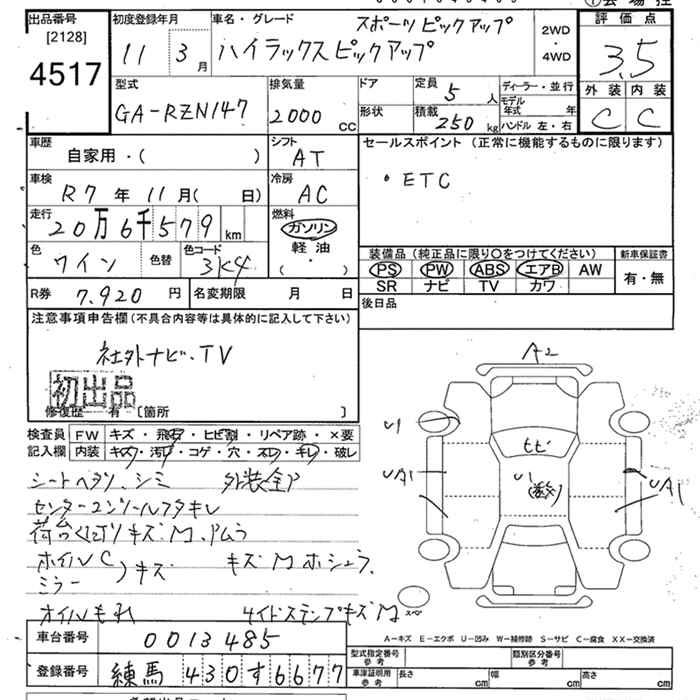 会場控
出品番号 初度登録年月 車名・グレード スポーツピックアップ 2WD 評価点
[2128] 11 3月 ハイラックスピックアップ ・4WD 3.5
4517
型式 排気量 ドア 定員 5人 ディーラー・並行 外装 内装
GA-RZN147 2000cc 形状 積載 250kg モデル年式 年 C C
ハンドル 左・右
車歴 シフト セールスポイント (正常に機能するものに限ります)
自家用・( ) AT
・ETC
車検 冷房
R7年11月( 日) AC
走行 燃料
20万6千579km ガソリン
軽油
( ・ )
色 色替 色コード 装備品(純正品に限り○をつけてください) 新車保証書
ワイン 3K4 PS PW ABS エアB AW 有・無
SR ナビ TV カワ
R券 7.920円 名変期限 月 日 後日品
注意事項申告欄(不具合内容等は具体的に記入して下さい)
社外ナビ・TV
初出品
修復歴 有 [箇所 ]
検査員 FW キズ・飛石・ヒビ割・リペア跡・×要
記入欄 内装 キズ・汚レ・コゲ・穴・スレ・キレ・破レ
シートヘタリ、シミ
センターコンソールフタキレ
キズM
ホイルC
ミラー キズ
オイルモレ
A2
U1
ヒビ
UA1
U1
UA1
スペ
A-キズ E-エクボ U-凹み W-補修跡 S-サビ C-腐食 XX-交換済
車台番号 0013485
登録番号 練馬 430す6677
型式指定番号 参考 類別区分番号 参考
車庫証明用 参考 長さ cm 幅 cm 高さ cm